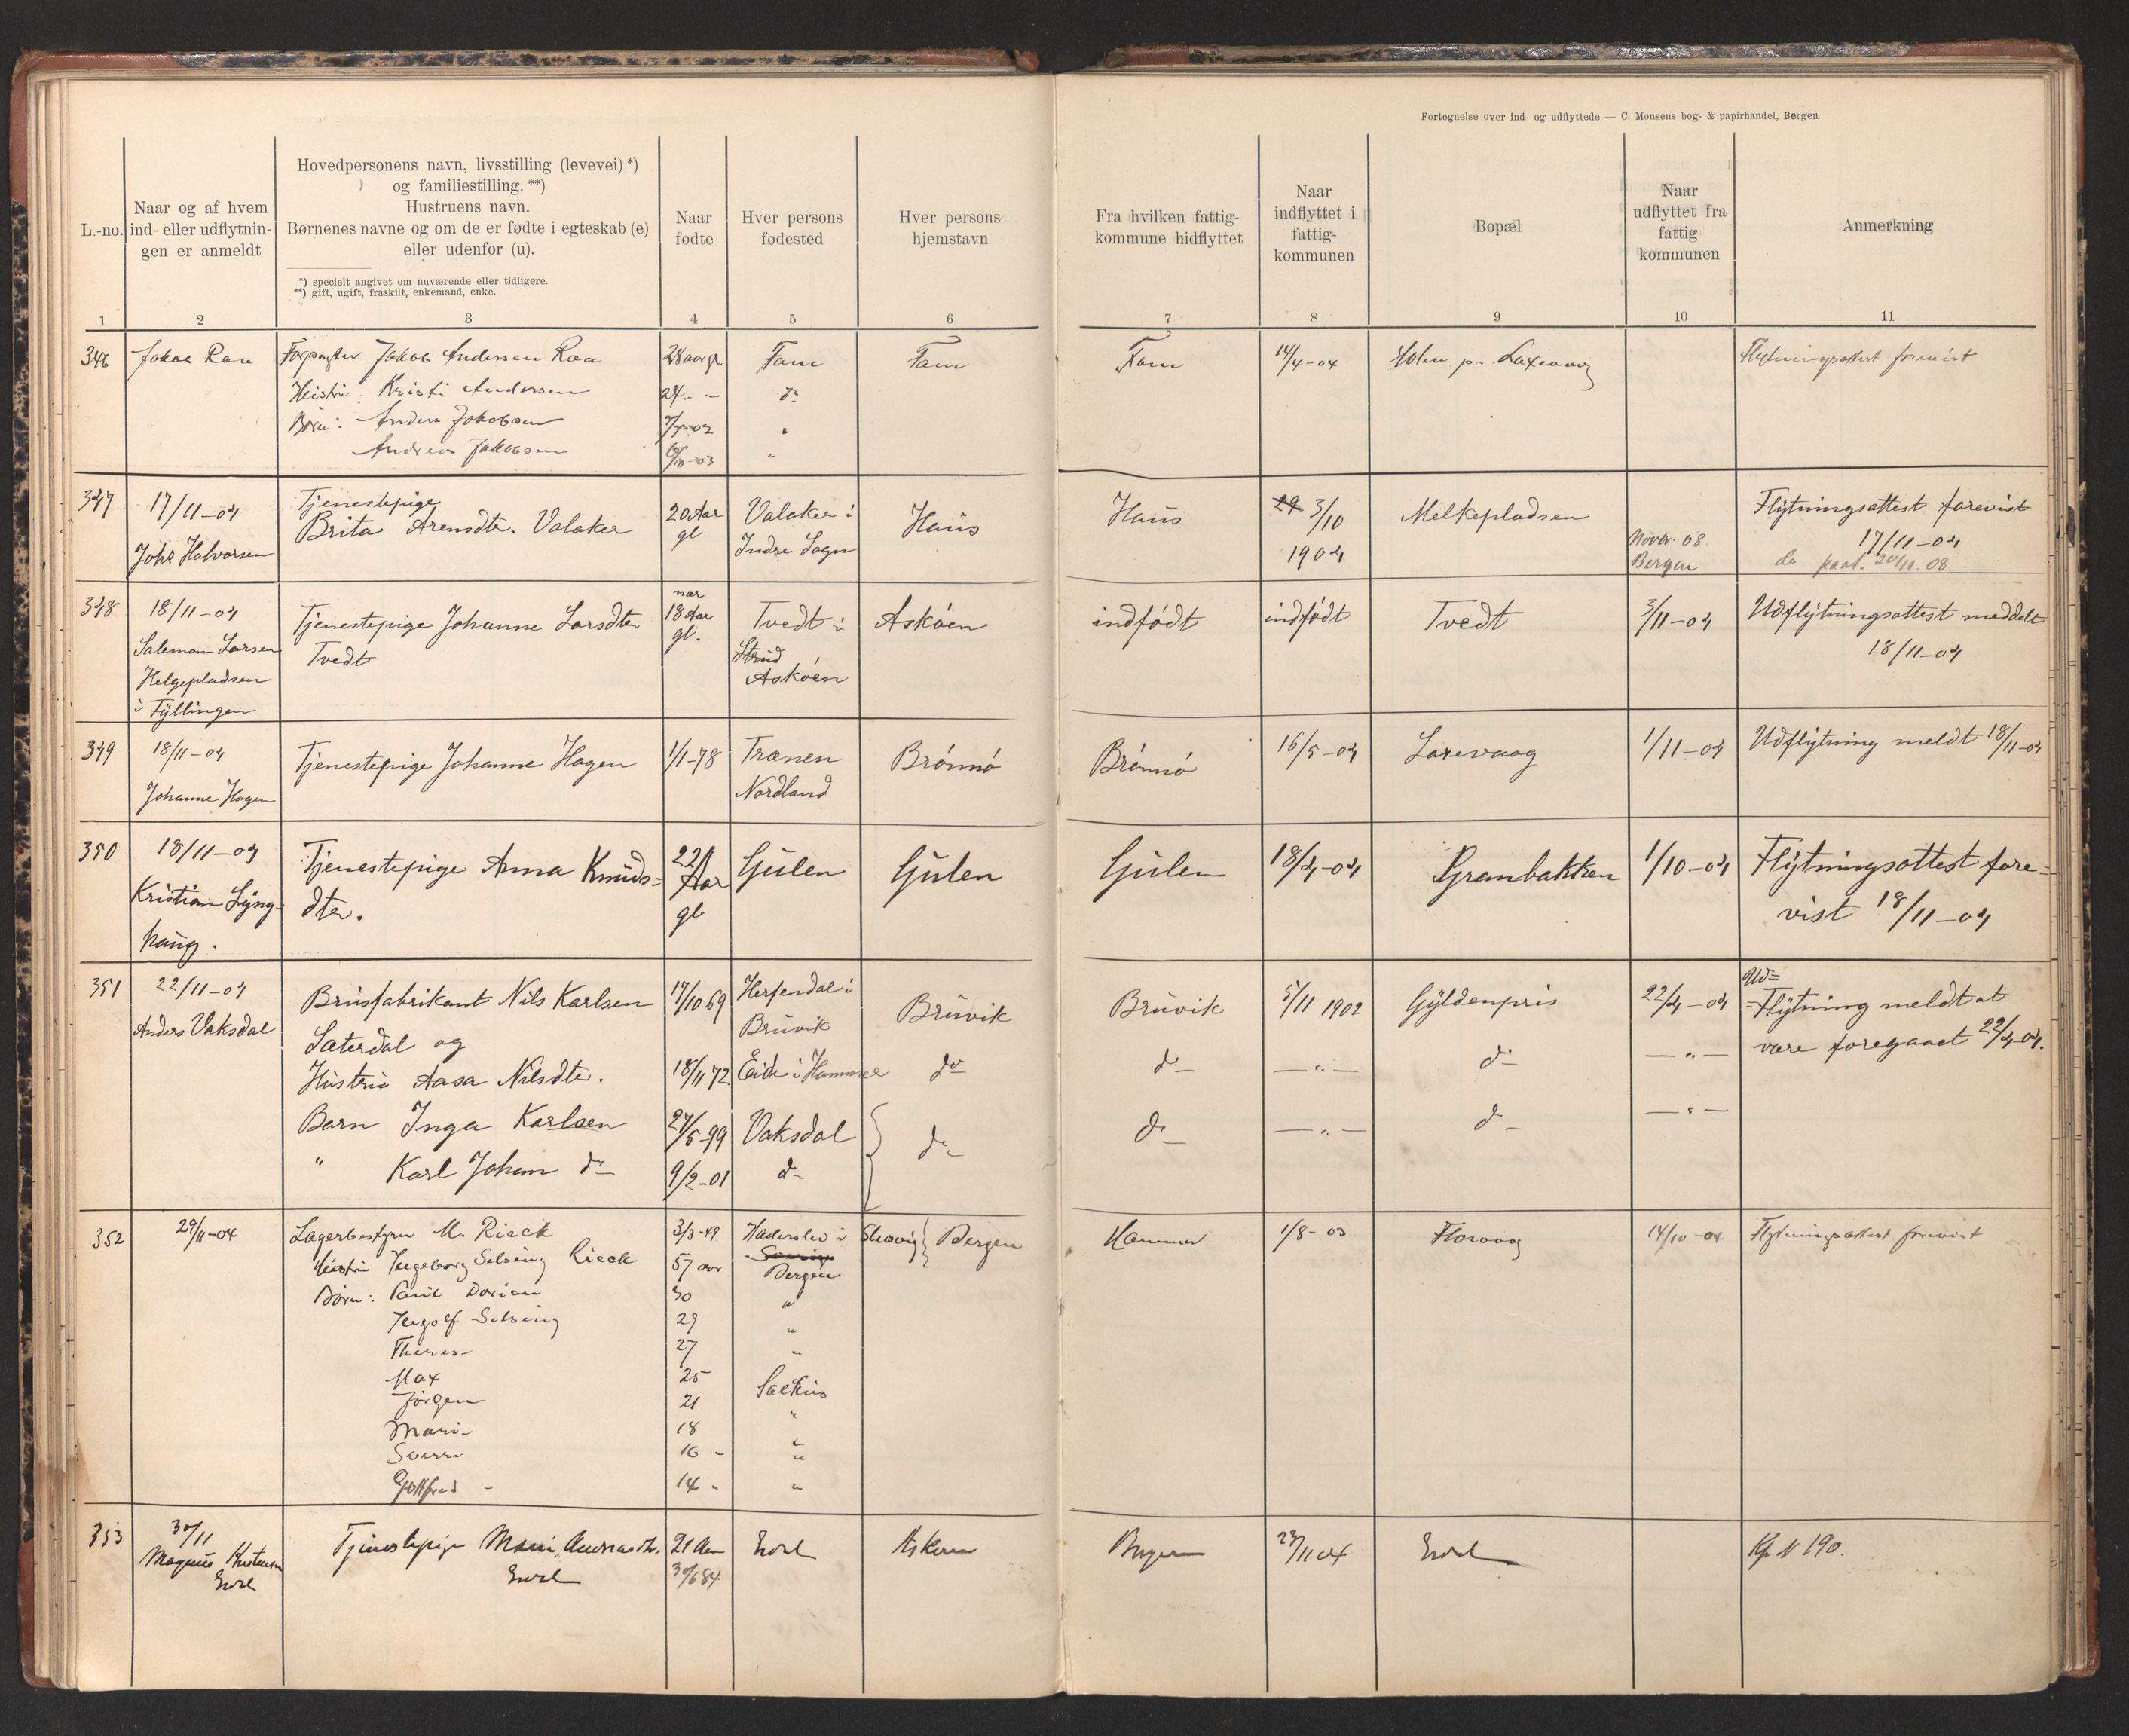 Fortegnelse over ind- og udflyttede — C. Monsens bog- & papirhandel, Bergen
L.-no.
Naar og af hvem
ind- eller udflytnin-
gen er anmeldt
Hovedpersonens navn, livsstilling (levevei) *)
og familiestilling. **)
Hustruens navn.
Børnenes navne og om de er fødte i egteskab (e)
eller udenfor (u).
*) specielt angivet om nuværende eller tidligere.
**) gift, ugift, fraskilt, enkemand, enke.
Naar
fødte
Hver persons
fødested
Hver persons
hjemstavn
Fra hvilken fattig-
kommune hidflyttet
Naar
indflyttet i
fattig-
kommunen
Bopæl
Naar
udflyttet fra
fattig-
kommunen
Anmerkning
1 2 3 4 5 6 7 8 9 10 11
346 Jakob Raa Jakob Andersen Raa 28 aar gl Fane Fane Fane 14/4-04 Holm pr. Laxevaag Flytningsattest forevist
Hustru: Kristi Andersen 24 - - do
Børn: Anders Jakobsen "
Andrea Jakobsen "
347 17/11-04 Tjenestepige 20 Aar Valaker i Haus Haus 3/10 Melkepladsen Flytningsattest forevist
Brita Arensdtr. Valaker gl Indre Sogn 1904 Novbr. 08. 17/11-04
Johs Halvorsen Bergen do paat. 20/11. 08.
348 18/11-04 Tjenestepige Johanne Larsdtr nær 18 Aar gl. Tvedt i Askøen indfødt indfødt Tvedt 3/11-04 Udflytningsattest meddelt
Salomon Larsen Tvedt Strud 18/11-04
Helgepladsen Askøen
i Fyllingen
349 18/11-04 Tjenestepige Johanne Hagen 1/1-78 Trænen Brønnø Brønnø 16/5-04 Laxevaag 1/11-04 Udflytning meldt 18/11-04
Johanne Hagen Nordland
350 18/11-04 Tjenestepige Anna Knuds= 22 Aar Gulen Gulen Gulen 18/4-04 Granbakken 1/10-04 Flytningsattest fore=
Kristian Lyng- dtr. gl vist 18/11-04
haug.
351 22/11-04 Brusfabrikant Nils Karlsen 17/10 69 Herfendal i Bruvik Bruvik 5/11 1902 Gyldenpris 22/4-04 Ud=
=Flytning meldt at
Anders Vaksdal Sæterdal og Bruvik være foregaaet 22/4-04.
Hustru Aasa Nilsdtr. 18/11 72 Eide i Hammer do do — " — do — " —
Barn Inga Karlsen 27/5-99 Vaksdal do do — " — do — " —
" Karl Johan do 9/2-01 do
352 29/11-04 M. Rieck 3/3-49 Haderslev i Slesvig Bergen Hammer 1/8-03 Florvaag 14/10-04 Flytningsattest forevist
Hustru Ingeborg Selsing Rieck 57 aar Bergen
Børn: Paul Dorian 30 "
Ingolf Selsing 29 "
Theres 27 "
Max 25
Jørgen 21 "
Marie 18 "
Sverre 16 - "
Gottfred - 14 " "
353 30/11 Tjenestepige Marie Andreasdtr. 21 Aar Erdal Askøen Bergen 27/11 04 Erdal Kp N 190.
Magnus Kristensen Erdal 30/6 84
Erdal